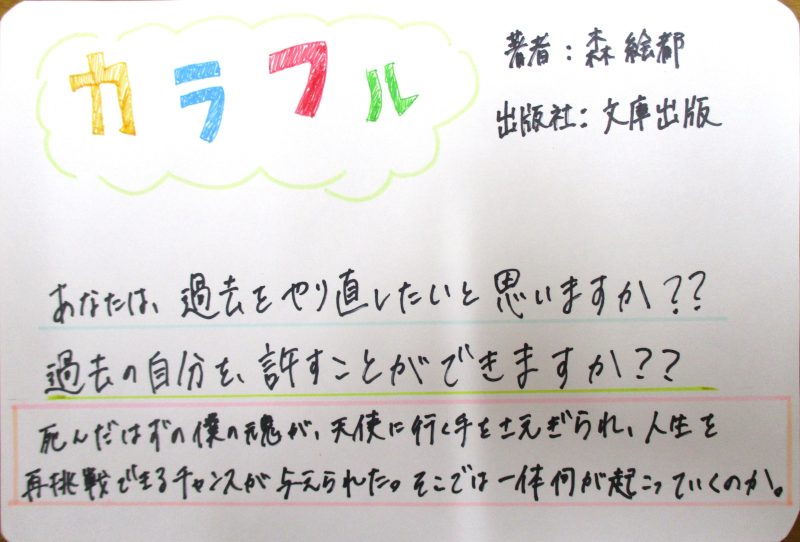 カラフル
著者：森絵都
出版社：文庫出版
あなたは、過去をやり直したいと思いますか？？
過去の自分を、許すことができますか？？
死んだはずの僕の魂が、天使に行く手をさえぎられ、人生を
再挑戦できるチャンスが与えられた。そこでは一体何が起こっていくのか。